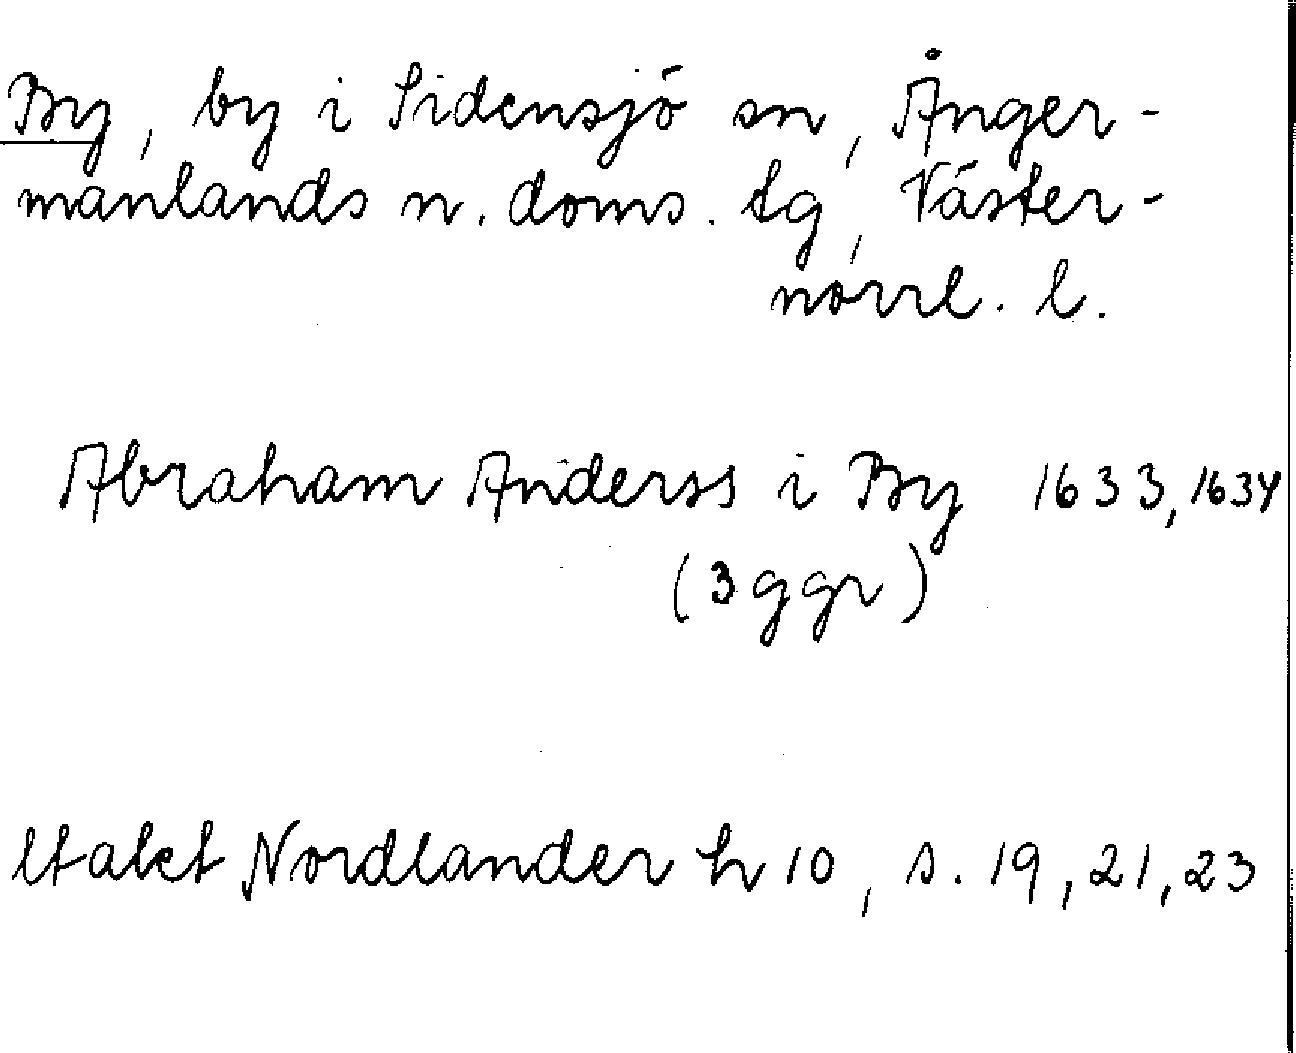 By, by i Sidensjö sn, Ånger-
manlands n. doms. tg, Väster-
norrl. l.
Abraham Anderss i By 1633, 1634
(3 ggr)
Nordlander h 10, s. 19, 21, 23